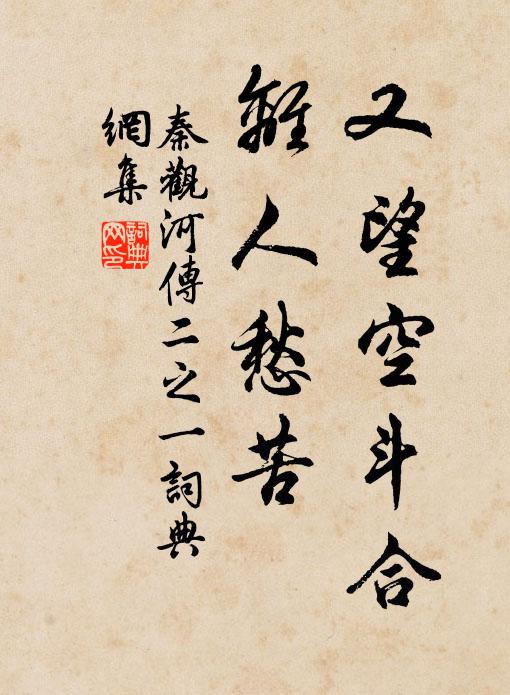 又望空斗合
離人愁苦
秦觀河傳二之一詞典
網集
詞典网印